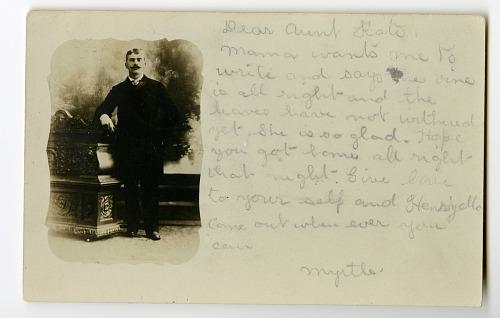 Dear Aunt Kate,
Mama wants me to
write and say the vine
is all right and the
leaves have not withered
yet. She is so glad. Hope
you got home all right
that night. Give love
to your self and
Come out when ever you
can
Myrtle.